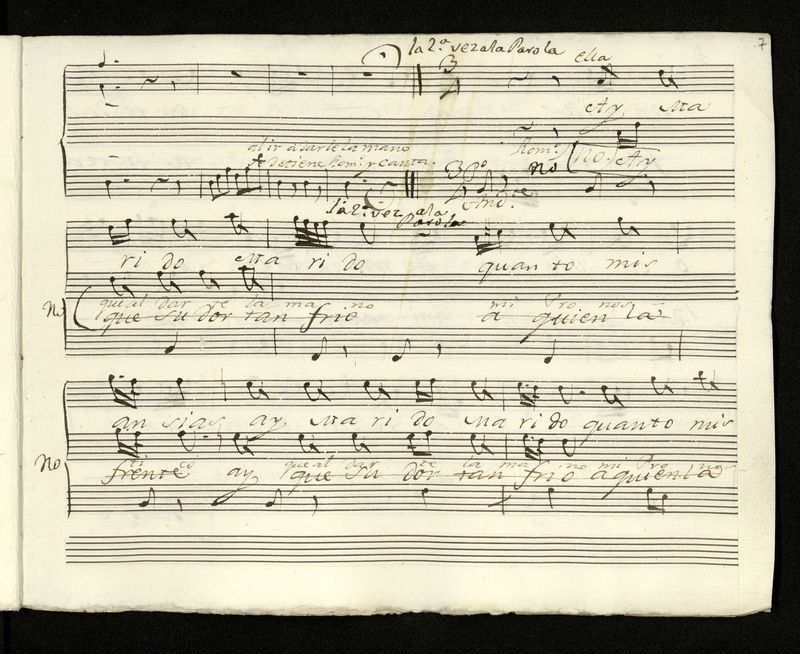 7
la 2.a vez a la Parola
ella
Ay Ma
al ir a darle la mano
detiene Rom.o y canta.
3
3 Po
Rom.o
no
no. Ay
And.e
la 2.a vez a la
Parola
ri do Ma ri do quanto mis
que al dar te la ma no mi Pro nos
No
que su dor tan frio a quien la
an sias ay Ma ri do Ma ri do quanto mis
ti co que al dar te la ma no mi Pro nos
No
frente ay que su dor tan frio a quien la